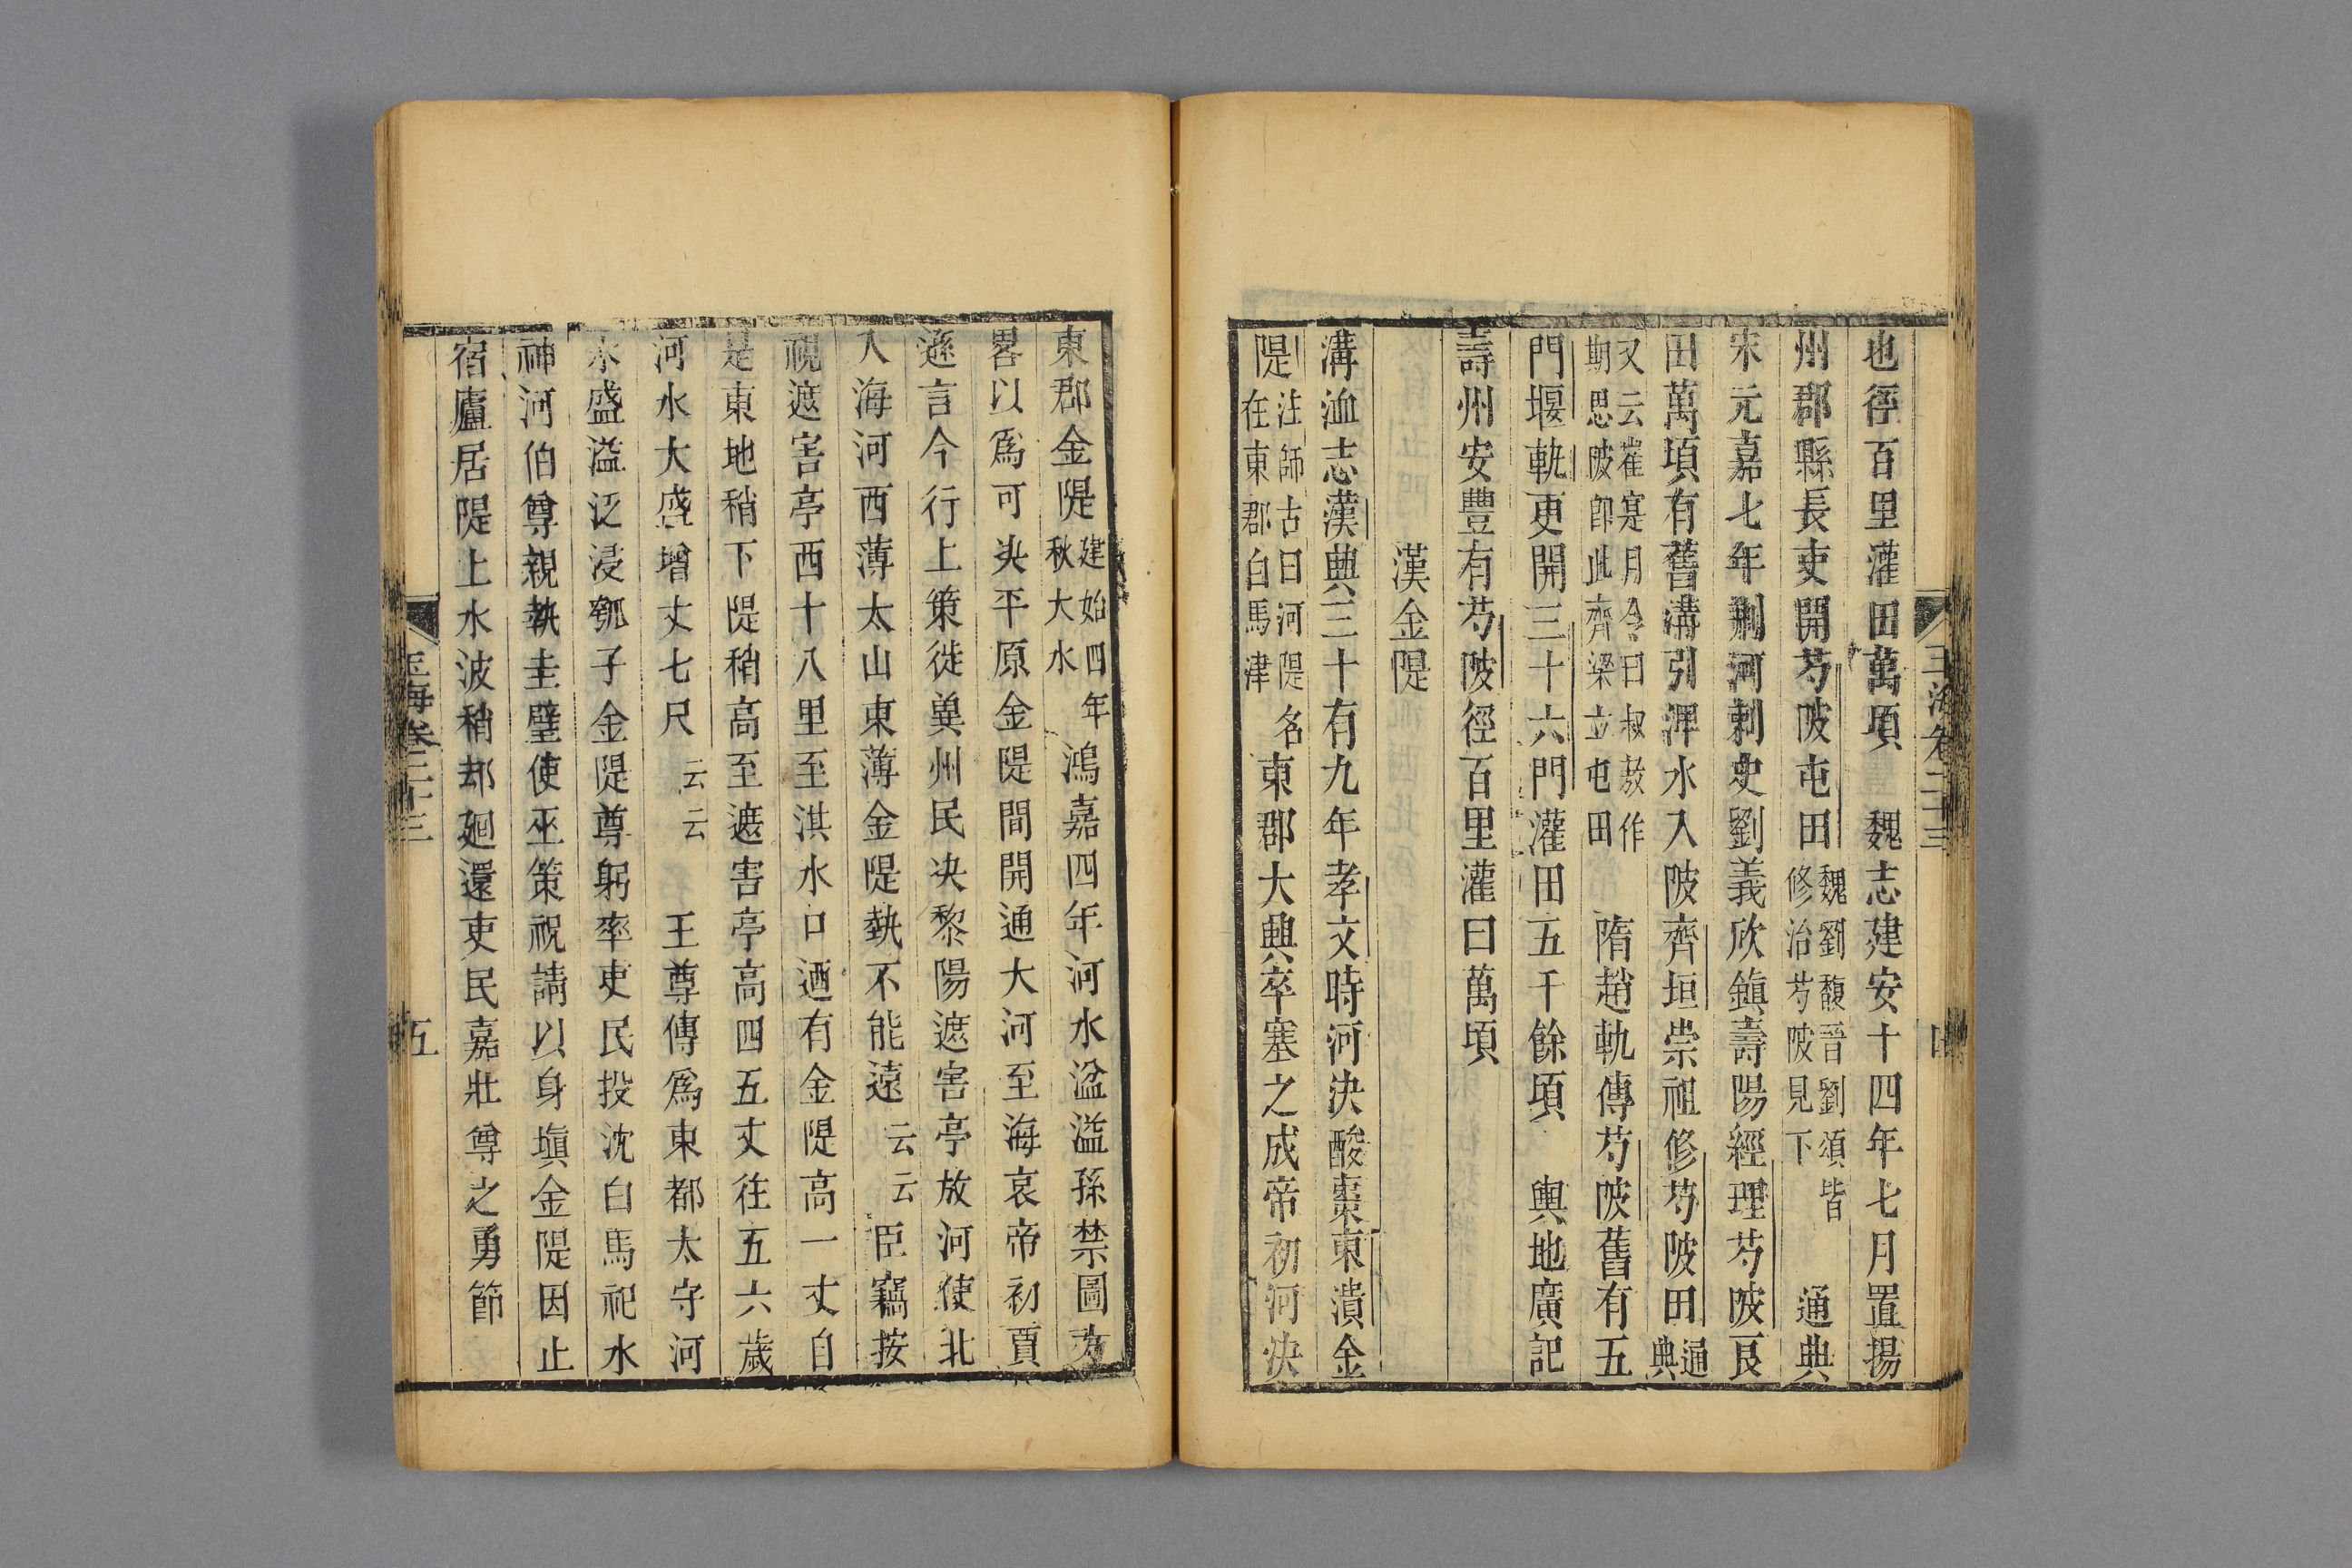 也徑百里灌田萬頃　魏志建安十四年七月置揚
州郡縣長吏開芍陂屯田魏劉馥晉劉頌皆修治芍陂見下　通典
宋元嘉七年荆河刺史劉義欣鎮壽陽經理芍陂良
田萬頃有舊溝引渒水入陂齊垣崇祖修芍陂田通典
又云崔寔月令曰叔敖作期思陂卽此齊梁立屯田　隋趙軌傳芍陂舊有五
門堰軌更開三十六門灌田五千餘頃　輿地廣記
壽州安豐有芍陂徑百里灌田萬頃
漢金隄
溝洫志漢興三十有九年孝文時河決酸棗東潰金
隄注師古曰河隄名在東郡白馬津東郡大興卒塞之成帝初河決
東郡金隄建始四年秋大水　鴻嘉四年河水湓溢孫禁圖方
畧以爲可決平原金隄間開通大河至海哀帝初賈
遜言今行上策徙冀州民決黎陽遮害亭放河使北
入海河西薄太山東薄金隄埶不能遠云云臣竊按
視遮害亭西十八里至淇水口迺有金隄高一丈自
是東地稍下隄稍高至遮害亭高四五丈往五六歲
河水大盛增丈七尺云云　王尊傳爲東郡太守河
水盛溢泛浸瓠子金隄尊躬率吏民投沈白馬祀水
神河伯尊親執圭璧使巫策祝請以身塡金隄因止
宿廬居隄上水波稍却廻還吏民嘉壯尊之勇節
玉海卷二十三
四
玉海卷二十三
五